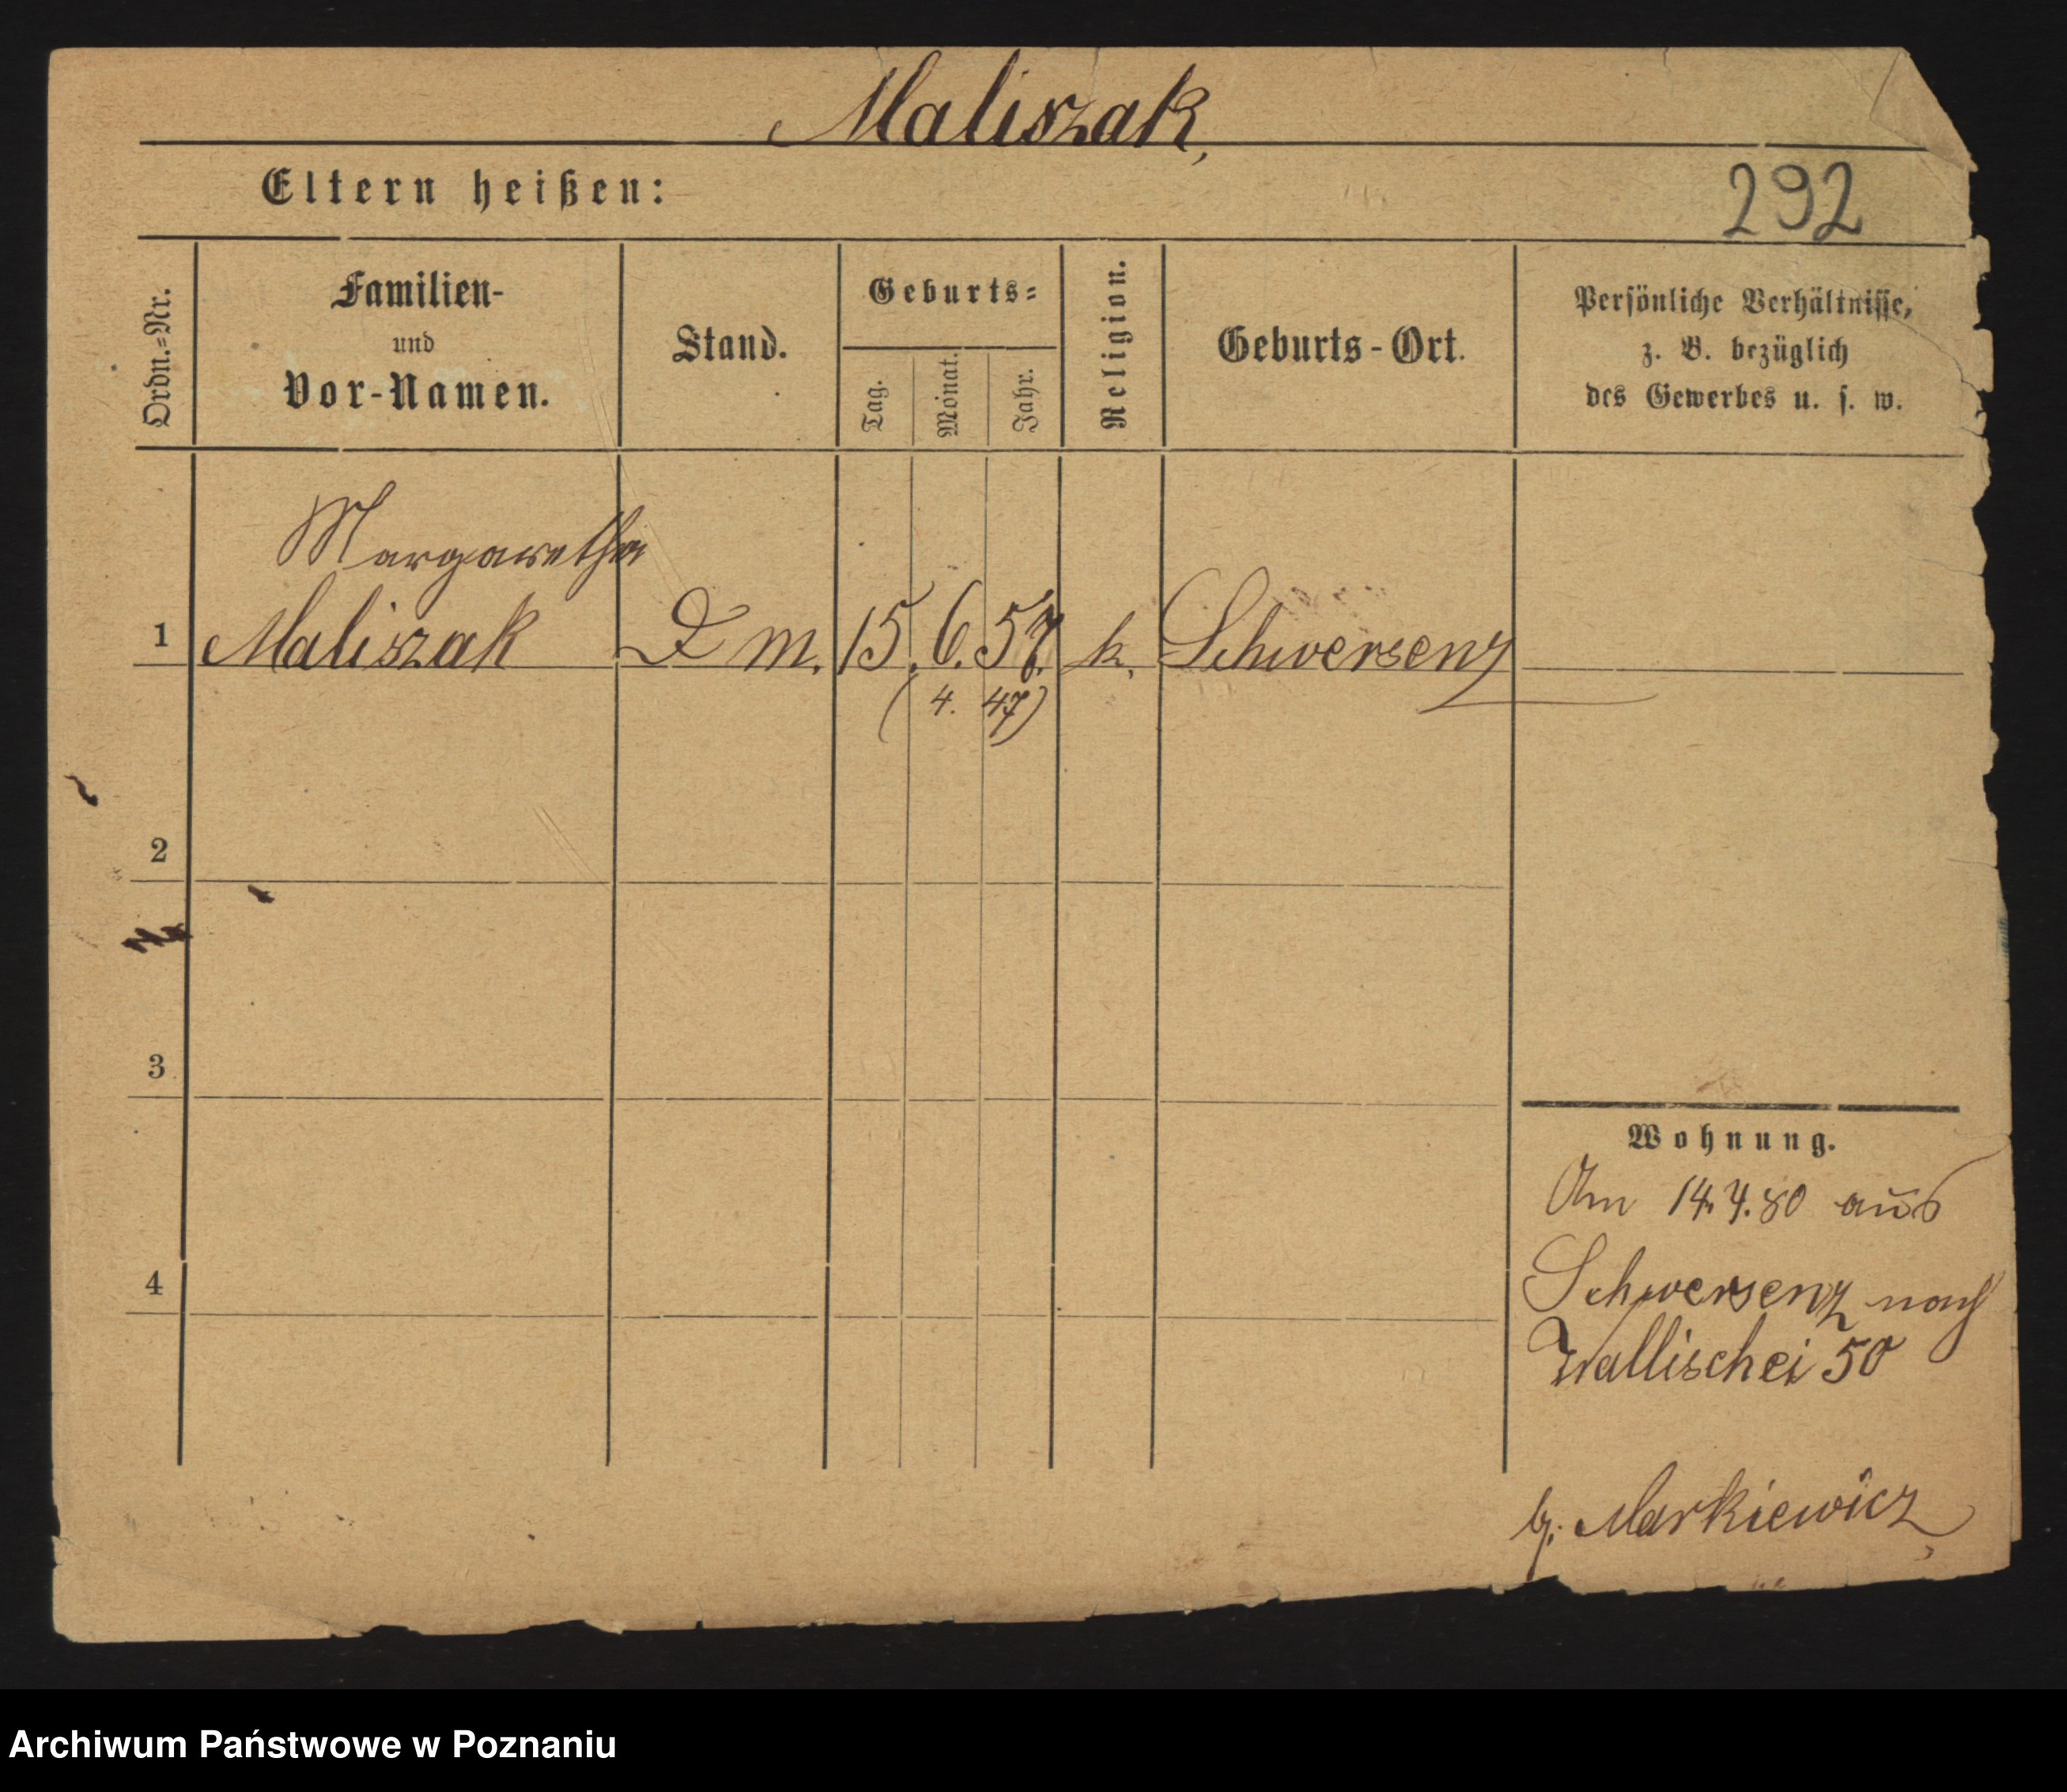 Maliszak,
Eltern heißen:
292
Ordn.=Nr.
Familien-
und
Vor-Namen.
Stand.
Geburts=
Tag.
Monat.
Jahr.
Religion.
Geburts-Ort.
Persönliche Verhältnisse,
z. B. bezüglich
des Gewerbes u. s. w.
Margarethe
1 Maliszak D m. 15. 6. 57. k. Schwersenz
( 4. 47)
2
3
4
Wohnung.
Am 14.4.80 aus
Schwersenz nach
Wallischei 50
b. Markiewicz
Archiwum Państwowe w Poznaniu